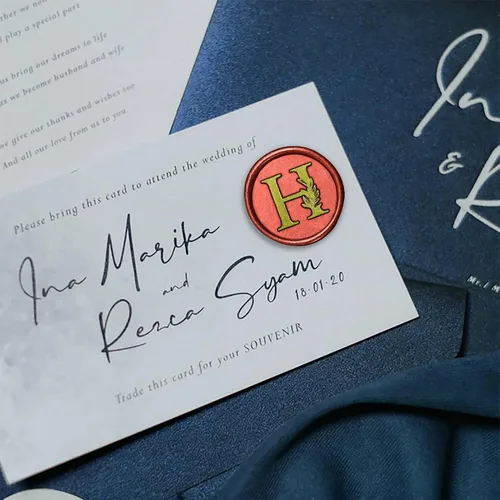 l play a special part
us bring our dreams to life
as we become husband and wife
we give our thanks and wishes too
And all our love from us to you
Please bring this card to attend the wedding of
H
Ina Marika
and
Rezca Syam
18-01-20
Trade this card for your SOUVENIR
&